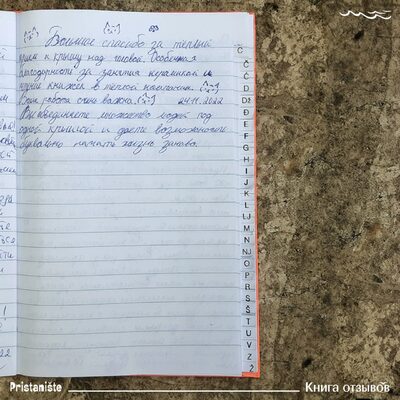 Большое спасибо за тёплый
приём и крышу над головой. Особенная
благодарность за занятия керамикой и
кружок в тёплой компании.
Ваша работа очень важна. 24.11.2022
Вы объединяете множество людей под
одной крышей и даёте возможность
буквально начать жизнь заново.
C
Č
Ć
D
Dž
Đ
E
F
G
H
I
J
K
L
LJ
M
N
NJ
O
P
R
S
Š
T
U
V
Z
Ž
Pristanište
Книга отзывов